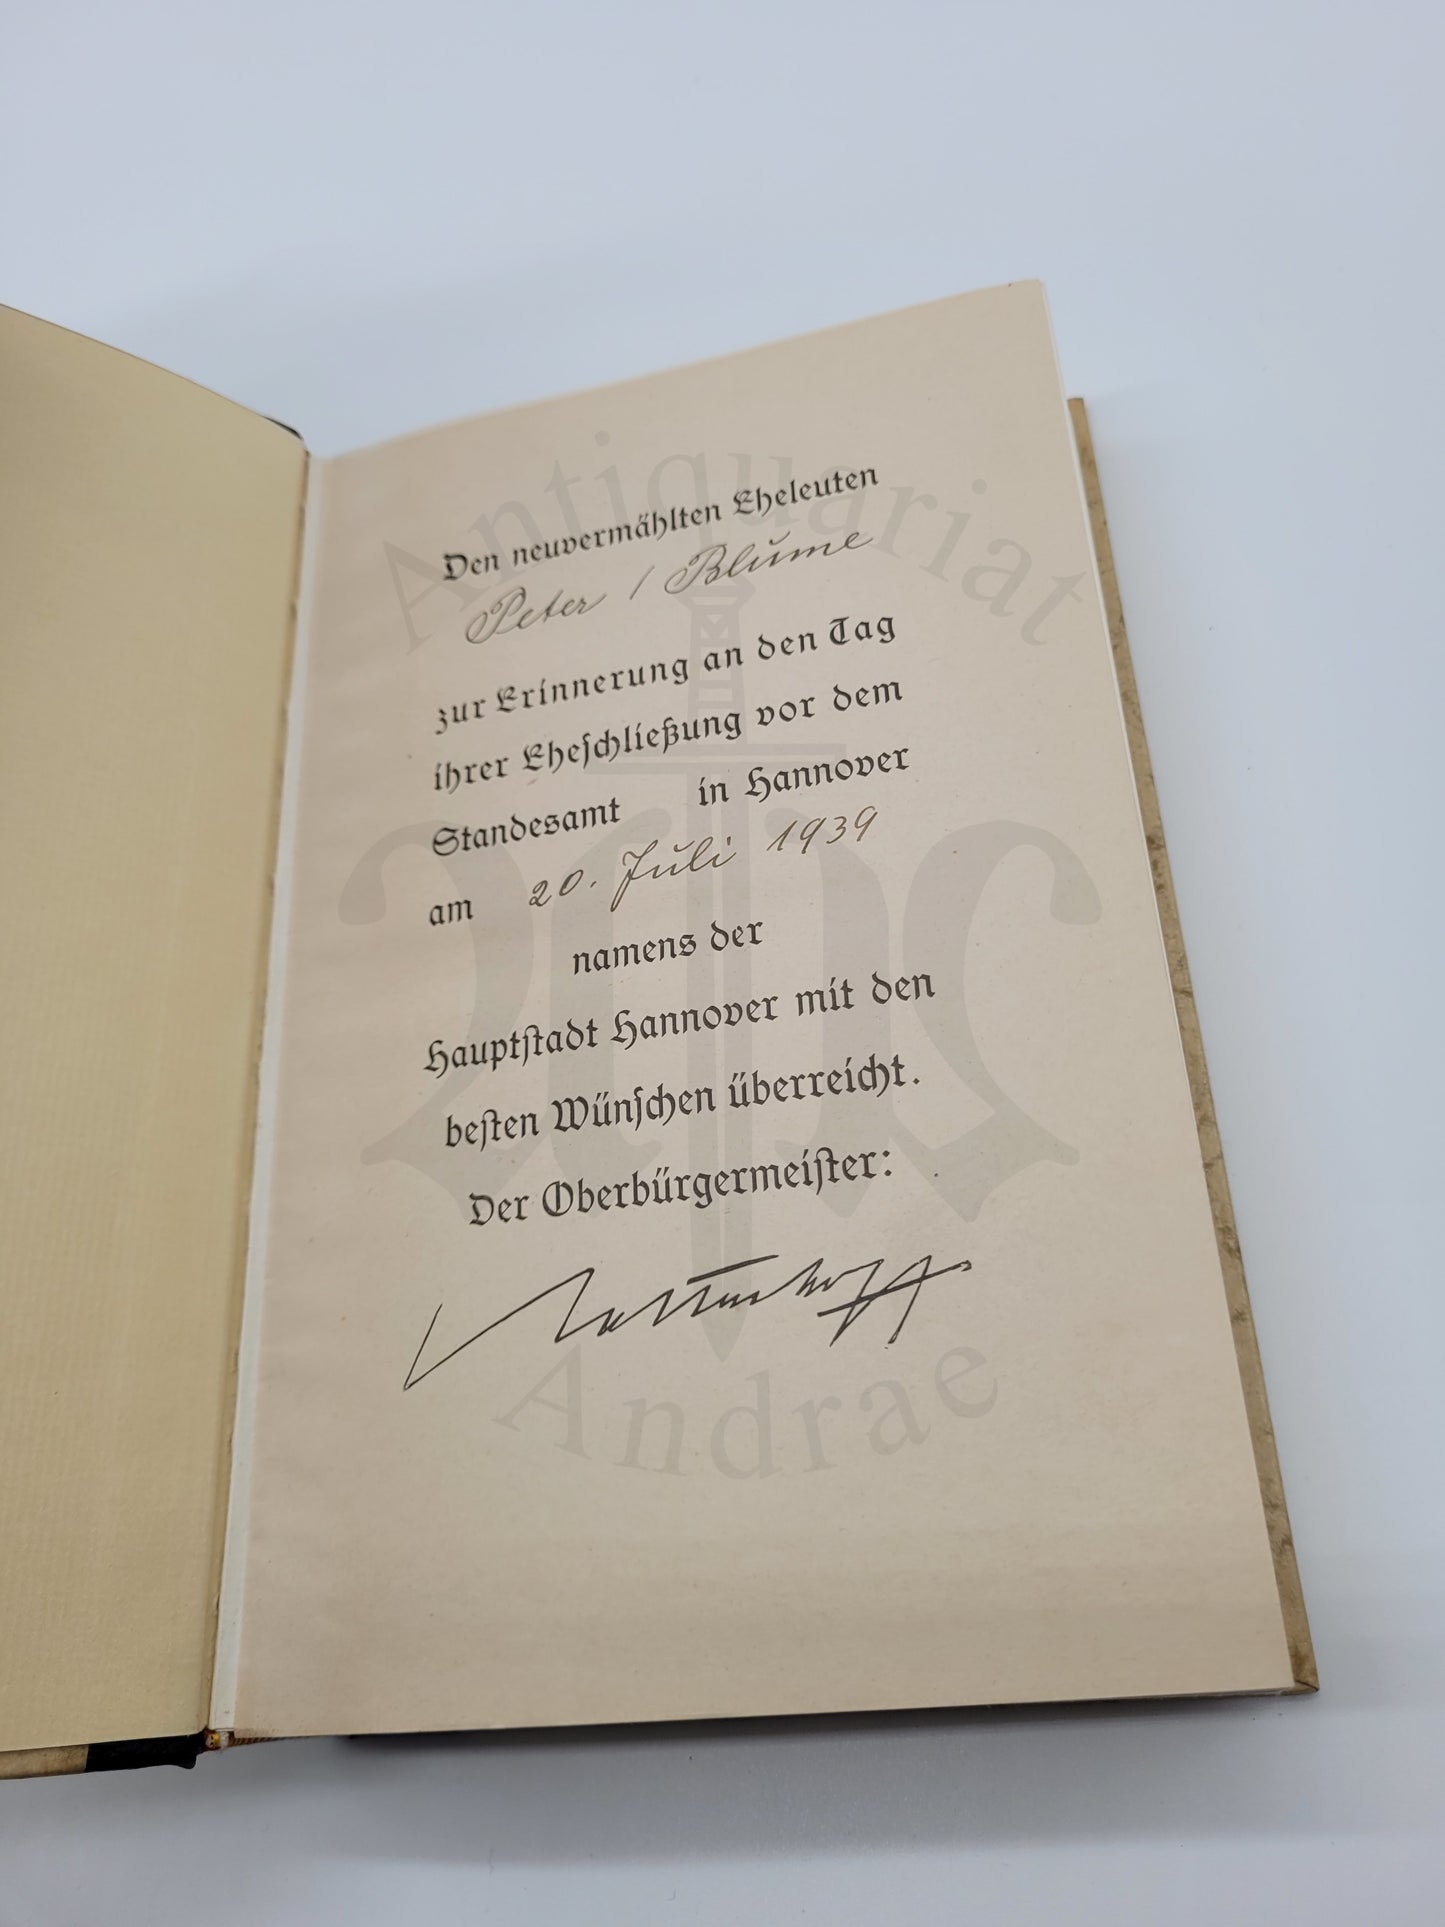 Den neuvermählten Eheleuten
Peter / Blume
zur Erinnerung an den Tag
ihrer Eheschließung vor dem
Standesamt in Hannover
am 20. Juli 1939
namens der
Hauptstadt Hannover mit den
besten Wünschen überreicht.
Der Oberbürgermeister:
Antiquariat
Andrae